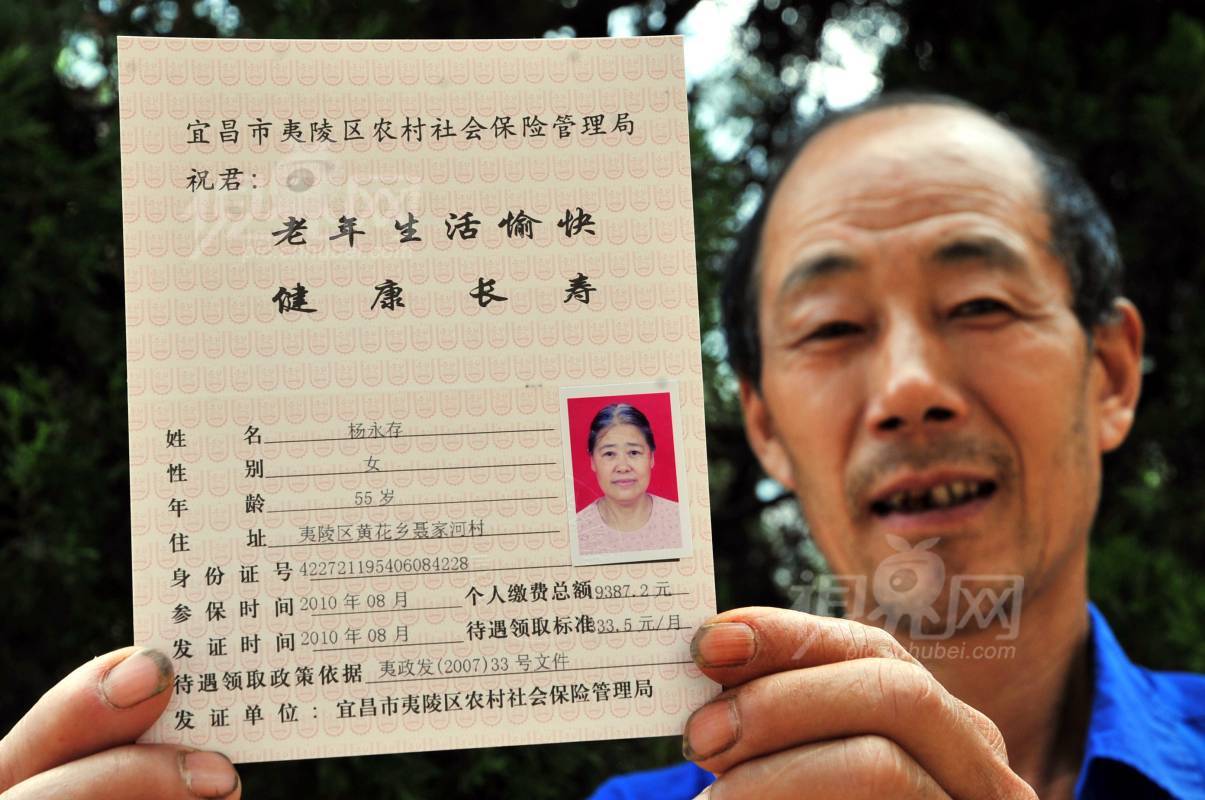 宜昌市夷陵区农村社会保险管理局
祝君：
老年生活愉快
健康长寿
姓名 杨永存
性别 女
年龄 55岁
住址 夷陵区黄花乡聂家河村
身份证号 422721195406084228
参保时间 2010年08月 个人缴费总额 9387.2元
发证时间 2010年08月 待遇领取标准 333.5元/月
待遇领取政策依据 夷政发(2007)33号文件
发证单位：宜昌市夷陵区农村社会保险管理局
视界网